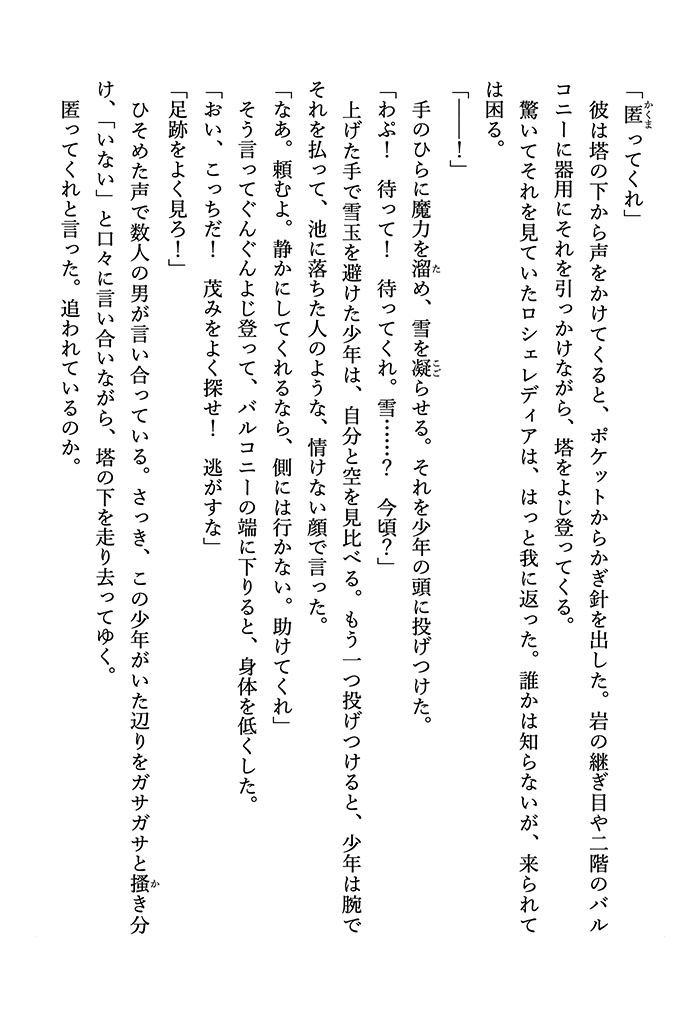 「匿ってくれ」
彼は塔の下から声をかけてくると、ポケットからかぎ針を出した。岩の継ぎ目や二階のバル
コニーに器用にそれを引っかけながら、塔をよじ登ってくる。
驚いてそれを見ていたロシェレディアは、はっと我に返った。誰かは知らないが、来られて
は困る。
「――！」
手のひらに魔力を溜め、雪を凝らせる。それを少年の頭に投げつけた。
「わぷ！　待って！　待ってくれ。雪……？　今頃？」
上げた手で雪玉を避けた少年は、自分と空を見比べる。もう一つ投げつけると、少年は腕で
それを払って、池に落ちた人のような、情けない顔で言った。
「なあ。頼むよ。静かにしてくれるなら、側には行かない。助けてくれ」
そう言ってぐんぐんよじ登って、バルコニーの端に下りると、身体を低くした。
「おい、こっちだ！　茂みをよく探せ！　逃がすな」
「足跡をよく見ろ！」
ひそめた声で数人の男が言い合っている。さっき、この少年がいた辺りをガサガサと掻き分
け、「いない」と口々に言い合いながら、塔の下を走り去ってゆく。
匿ってくれと言った。追われているのか。